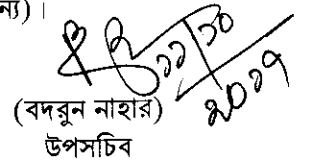 ন্য)।
১১/১০
২০১৭
(বদরুন নাহার)
উপসচিব